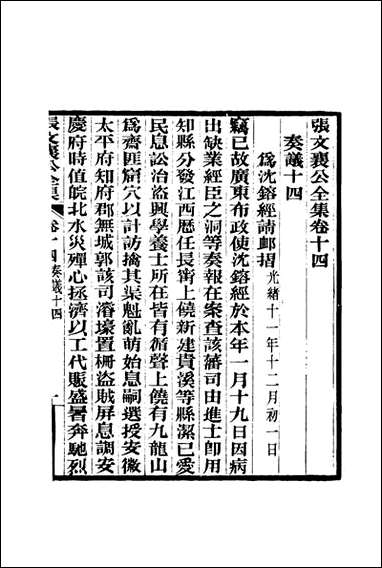 張文襄公全集卷十四
奏議十四
爲沈鎔經請䘏摺光緒十一年十二月初一日
竊已故廣東布政使沈鎔經於本年一月十九日因病
出缺業經臣之洞等奏報在案查該藩司由進士卽用
知縣分發江西歷任長甯上饒新建貴溪等縣潔己愛
民息訟治盜興學養士所在皆有循聲上饒有九龍山
爲齋匪窟穴以計訪擒其渠魁亂萌始息嗣選授安徽
太平府知府郡無城郭該司濬壕置柵盜賊屏息調安
慶府時值皖北水災殫心拯濟以工代賑盛暑奔馳烈
張文襄公全集
卷十四奏議十四
一